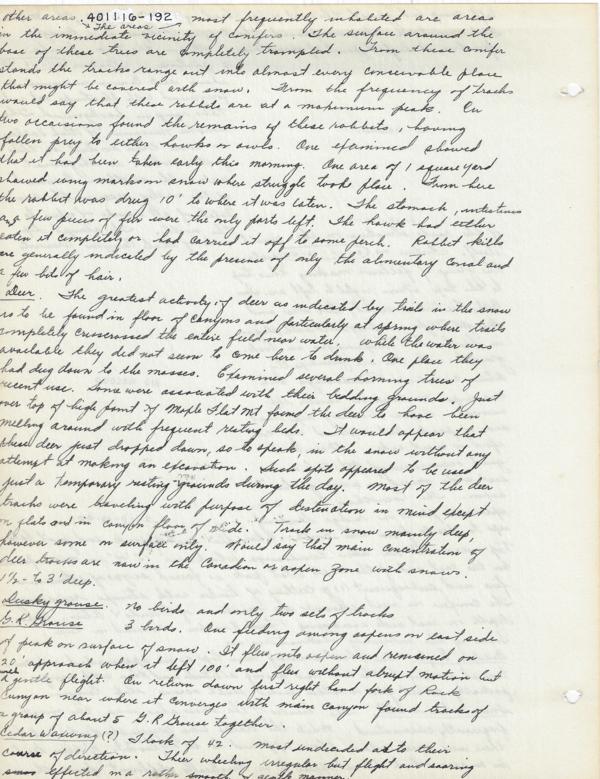 other areas. 401116-192 most frequently inhabited are areas
The areas
in the immediate vicinity of conifers. The surface around the
base of these trees are completely trampled. From these conifer
stands the tracks range out into almost every conceivable place
that might be covered with snow. From the frequency of tracks
would say that these rabbits are at a maximum peak. On
two occaisions found the remains of these rabbits, having
fallen prey to either hawks or owls. One examined showed
that it had been taken early this morning. One area of 1 square yard
showed wing marks on snow where struggle took place. From here
the rabbit was drug 10' to where it was eaten. The stomach, intestines
and a few pieces of fur were the only parts left. The hawk had either
eaten it completely or had carried it off to some perch. Rabbit kills
are generally indicated by the presence of only the alimentary canal and
a few bits of hair.
Deer. The greatest activity of deer as indicated by trails in the snow
is to be found in floor of canyons and particularly at spring where trails
completely crisscrossed the entire field near water. While the water was
available they did not seem to come here to drink. One place they
had dug down to the mosses. Examined several horning trees of
recent use. Some were associated with their bedding grounds. Just
over top of high point of Maple Flat Mt found the deer to have been
milling around with frequent resting beds. It would appear that
these deer just dropped down, so to speak, in the snow without any
attempt at making an excavation. Such spots appeared to be used
just a temporary resting grounds during the day. Most of the deer
tracks were traveling with purpose of destination in mind except
on flats and in canyon floor of Tracks in snow mainly deep,
however some on surface only. Would say that main concentration of
deer tracks are now in the Canadian or aspen zone with snows
1½ - to 3' deep.
Dusky grouse. No birds and only two sets of tracks
G.R. Grouse 3 birds. One feeding among aspens on east side
of peak on surface of snow. It flew into aspen and remained on
20' approach when it left 100' and flew without abrupt motion but
with a gentle flight. On return down first right hand fork of Rock
Canyon near where it converges with main canyon found tracks of
a group of about 5 G.R Grouse together.
Cedar Waxwing (?) Flock of 42. Most undecided as to their
course of direction. Their wheeling irregular but flight and soaring
effected in a rather smooth & manner.